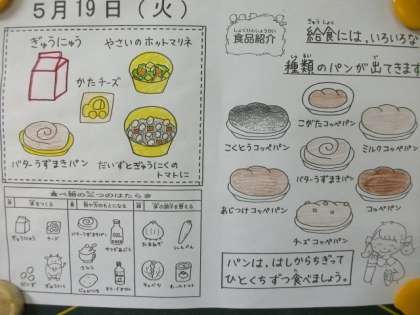 5月19日（火）
ぎゅうにゅう
やさいのホットマリネ
かたチーズ
バターうずまきパン
だいずとぎゅうにくの
トマトに
食べ物の三つのはたらき
ぎゅうにゅう
チーズ
だいず
ぎゅうにく
バターうずまきパン
じゃがいも
たまねぎ
にんじん
キャベツ
しょくひんしょうかい
食品紹介
きゅうしょく
給食には、いろいろな
しゅるい
種類のパンが出てきます
こがたコッペパン
こくとうコッペパン
ミルクコッペパン
バターうずまきパン
あじつけコッペパン
コッペパン
チーズコッペパン
パンは、はしからちぎって
ひとくちずつ食べましょう。